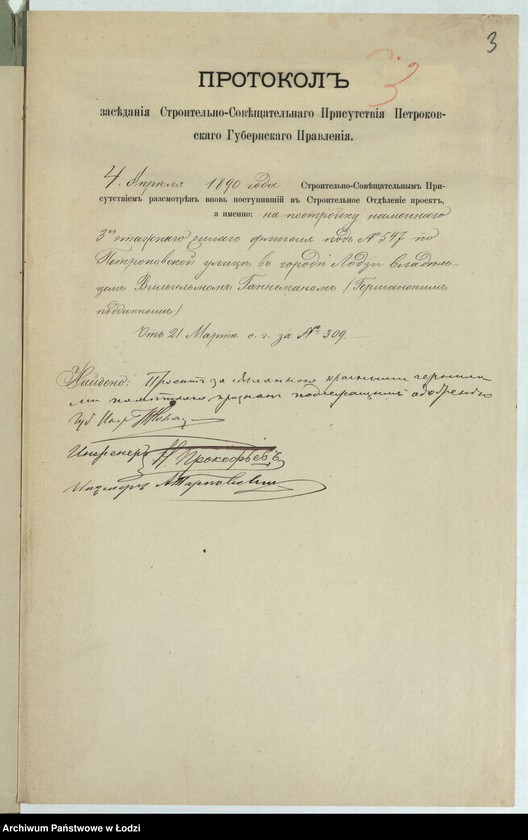 3
3
ПРОТОКОЛЪ
засѣданія Строительно-Совѣщательнаго Присутствія Петроков-
скаго Губернскаго Правленія.
4 Апрѣля 1890 года Строительно-Совѣщательнымъ При-
сутствіемъ разсмотрѣнъ вновь поступившій въ Строительное Отдѣленіе проектъ,
а именно: на постройку каменнаго
3хъ этажнаго жилаго флигеля подъ № 547 по
Петроковской улицѣ въ городѣ Лодзи владѣль-
цемъ Вильгельмомъ (Германскимъ
подданнымъ)
Отъ 21 Марта с. г. за № 309.
Найдено: Проектъ за сдѣланною красными чернила
ми признанъ подлежащимъ одобренію
Губ
Инженеръ Н Прокофьевъ
Инженеръ
Archiwum Państwowe w Łodzi